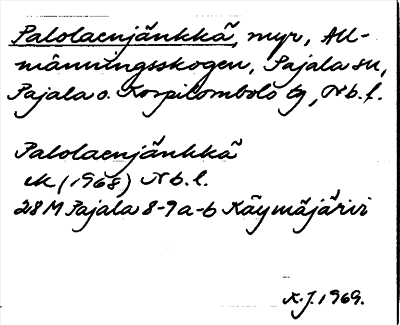 Palolaenjänkkä, myr, All-
männingsskogen, Pajala sn,
Pajala o. Korpilombolo tg, Nb.l.
Palolaenjänkkä
ek (1968) Nb.l.
28M Pajala 8-9a-b Käymäjärvi
K.J. 1969.